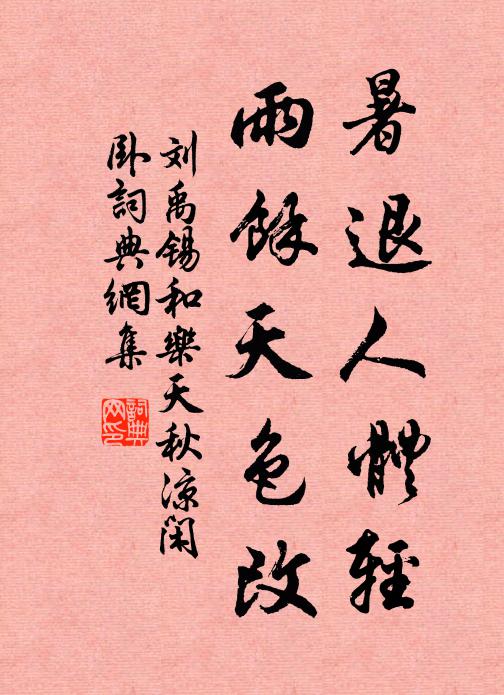 暑退人體輕
雨餘天色改
刘禹锡和樂天秋凉闲
卧詞典網集
詞典
网印